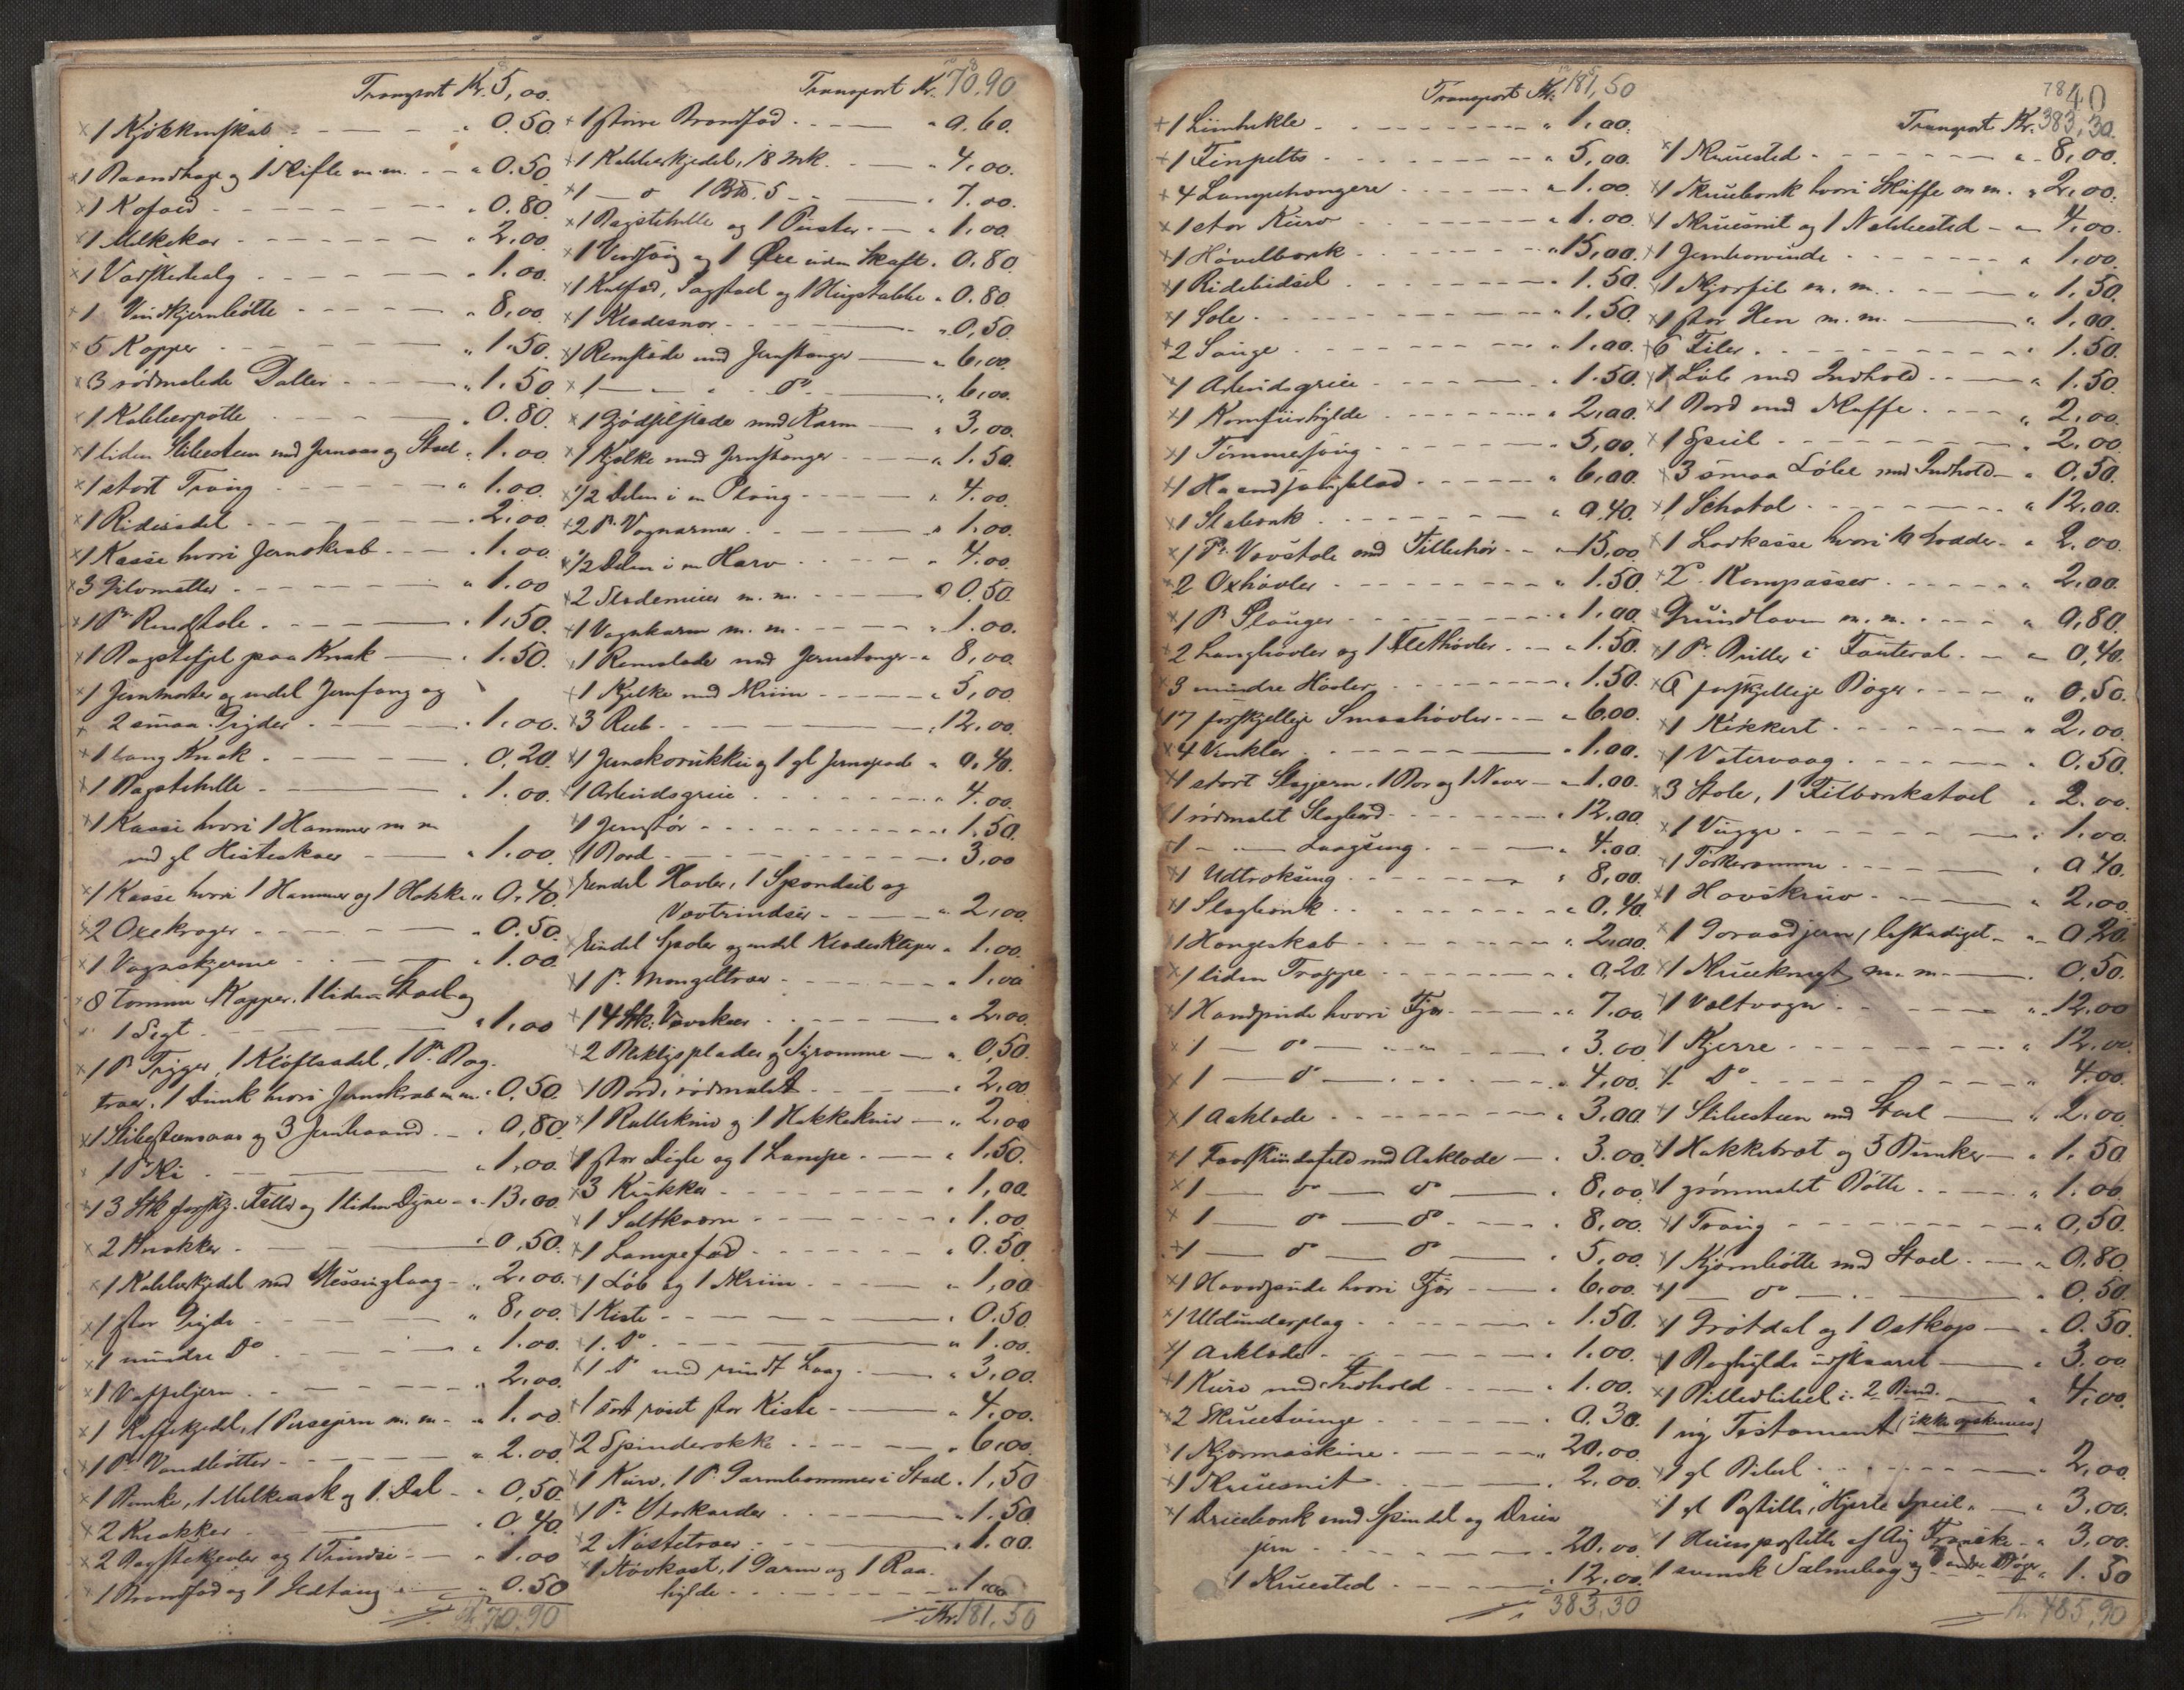 Transport Kr. 5,00.
x 1 Kjøkkenskab - - - " 0.50.
x 1 Baandhage og 1 Rifle m.m. - - " 0.50
x 1 Kofoed - - - " 0.80.
x 1 Melkekar - - - " 2,00.
x 1 Vaskebalg - - - " 1.00.
x 1 Vindkjernbøtte - - - " 8,00.
x 5 Kopper - - - " 1.50.
x 3 rødmalede Daller - - - " 1.50.
x 1 Kobberpotte - - - " 0.80.
x 1 liden Slibesteen med Jernaas og Stoel " 1.00.
x 1 stort Traug - - - " 1.00.
x 1 Ridesadel - - - " 2,00.
x 1 Kasse hvori Jernskrab - - - " 1.00.
x 3 Filematter - - - " 1.00
x 1 Pr. Rendstole - - - " 1.50.
x 1 Bagstefjel paa Krak - - - " 1.50.
x 1 Jernmorter og endel Jernfang og
x 2 smaa Gryder - - - " 1.00.
x 1 lang Krak - - - " 0,20.
x 1 Bagstehelle - - - " 1.00.
x 1 Kasse hvori 1 Hammer m m
med gl Hesteskoer - - - " 1.00.
x 1 Kasse hvori 1 Hammer og 1 Hakke " 0.40.
x 2 Oxekroger - - - " 0.50.
x 1 Vognskjerme - - - " 1.00.
x 8 tomme Kopper, 1 liden Stoel og
x 1 Sigt - - - " 1,00
x 1 Pr Tryger, 1 Kløftsadel, 1 Pr. Bog-
træer, 1 Dunk hvori Jernskrab m m " 0.50.
x 1 Slibesteensaas og 3 Jernbaand - - " 0,80.
x 1 Pr Ski - - - " 1,00.
x 13 Stk forskj. Feller og 1 liden Dyne - " 13,00.
x 2 Krakker - - - " 0,50.
x 1 Kobberkjedel med Messinglaag - " 2,00.
x 1 stor Gryde - - - " 8,00.
x 1 mindre Do - - - " 1.00.
x 1 Vaffeljern - - - " 2,00.
x 1 Kaffekjedel, 1 Pressejern m. m. - " 1.00.
x 1 Pr. Vandbøtter - - - " 2.00.
x 1 Bimke, 1 Melkeask og 1 Dal - " 0,50.
x 2 Krakker - - - " 0,40.
x 2 Bagstekjevler og 1 Trindse - " 1.00
x 1 Bromfad og 1 Ildtang - " 0.50
Kr. 70.90
Transport Kr. 70.90
x 1 større Bromfad - - - " 0.60.
x 1 Kobberkjedel, 18 Mk. - - - " 4,00.
x 1 — o 1 Bpd. 5 - - - " 7.00.
x 1 Bagstehelle og 1 Puster - - " 1,00.
x 1 Vedsaug og 1 Øxe uden Skaft. " 0.80.
x 1 Kulfad, Sagstoel og 1 Hugstabbe " 0.80
x 1 Klædesnor - - - " 0,50.
x 1 Remslæde med Jernstænger - " 6,00.
x 1 — — - do - " 6,00.
x 1 Gjødselslæde med Karm - " 3,00.
x 1 Kjelke med Jernstænger - - " 1.50.
x 1/2 Delen i en Plaug - - - " 4.00.
x 2 Pr. Vognarmer - - - " 1,00.
x 1/2 Delen i en Harv - - - " 4.00.
x 2 Slædemeier m. m. - - - " 0.50.
x 1 Vognkarm m. m. - - - " 1.00.
x 1 Remslæde med Jernstænger - " 8,00.
x 1 Kjelke med Skrin - - - " 5,00
x 3 Reb - - - " 12,00.
x 1 Jernskorukke og 1 gl Jernspade " 0,40.
x 1 Arbeidsgreie - - - " 4.00.
x 1 Jernstør - - - " 1.50.
x 1 Bord - - - " 3,00
x Endel Havler, 1 Spandseil og
Vevtrindser - - - " 2,00.
x Endel Spoler og endel Klædesklyper " 1,00.
x 1 Pr. Mangeltræer - - - " 1,00
x 14 Stk. Vævskeer - - - " 2,00.
x 2 Bleklysplader og Syramme - " 0,50.
x 1 Bord, rødmalet - - - " 2,00.
x 1 Rullekniv og 1 Hakkekniv - " 2,00
x 1 stor Digle og 1 Lampe - - " 1,50.
x 3 Krukker - - - " 1,00.
x 1 Saltkværn - - - " 1.00.
x 1 Lampefad - - - " 0.50.
x 1 Løb og 1 Skrin - - - " 1,00
x 1 Kiste - - - " 0.50.
x 1. Do - - - " 1.00.
x 1 Do med rundt Laag - " 3,00.
x 1 sort roset stor Kiste - - " 4,00.
x 2 Spinderokke - - - " 6,00.
x 1 Kurv, 1 Pr. Garnbommer i Stoel " 1,50
x 1 Pr. Storkarder - - - " 1.50.
x 2 Nøstetræer - - - " 1.00.
x 1 Støvkost, 1 Garn og 1 Raa-
hylde - - - " 1,00
Kr. 181,50
Transport Kr. 181,50
x 1 Liinhekle - - - " 1,00.
x 1 Finpelts - - - " 5,00.
x 4 Lampehængere - - - " 1.00.
x 1 stor Kurv - - - " 1.00
x 1 Høvelbænk - - - " 15,00.
x 1 Ridebidsel - - - " 1.50.
x 1 Sole - - - " 1.50.
x 2 Sauge - - - " 1.00.
x 1 Arbeidsgreie - - - " 1.50.
x 1 Komfurhylde - - - " 2,00.
x 1 Tømmersaug - - - " 5,00.
x 1 Haandsaugblad - - - " 6,00.
x 1 Slabænk - - - " 0,40.
x 1 Pr. Vævstole med Tilbehør - - " 15,00.
x 2 Oxhøvler - - - " 1.50.
x 1 Pr Plauger - - - " 1,00.
x 2 Langhøvler og 1 Slethøvler - - " 1.50.
x 3 mindre Høvler - - - " 1.50.
17 forskjellige Smaahøvler - - " 6,00.
x 4 Vinkler - - - " 1.00.
x 1 stort Slagjern, 1 Bor og 1 Naver - " 1.00.
1 rødmalet Slagbord - - - " 12,00
1 - — Laagseng - - - " 4.00.
x 1 Udtrækseng - - - " 8,00.
x 1 Slagbænk - - - " 0,40.
1 Hængeskab - - - " 2,00.
x 1 liden Trappe - - - " 0,20.
x 1 Hovedpude hvori Fjær - - - " 7.00
x 1 — do — " - " 3.00
x 1 — do — - - " 4,00.
x 1 Aaklæde - - - " 3,00.
x 1 Faarskindsfeld med Aaklæde - " 3.00.
x 1 — do — do — " 8,00.
x 1 — do — do - - " 8,00.
x 1 — do do — " 5,00.
x 1 Hovedpude hvori Fjær - - " 6,00.
x 1 Uldunderplag - - - " 1.50.
x 1 Aaklæde - - - " 1.00.
x 1 Kurv med Indhold - - - " 1.00.
x 2 Skruetvinge - - - " 0.30.
x 1 Skjærmaskine - - - " 20,00
x 1 Skruesnit - - - " 2,00.
x 1 Dreiebænk med Spindel og Dreie-
jern - - - " 20,00.
1 Skruested - - - " 12,00.
383,30
78 40
Transport Kr. 383,30.
x 1 Skruested - - - " 8,00.
x 1 Skruebænk hvori Skuffe m m. " 2,00.
x 1 Skruesnit og 1 Nebbested - " 4,00.
x 1 Jernborvinde - - - " 1,00.
x 1 Skjærfil m. m. - - - " 1.50.
x 1 stor Hen m. m. - " 1,00.
x 6 Filer - - - " 1.50.
x 1 Løb med Indhold - - " 1.50
x 1 Bord med Skuffe - - - " 2,00.
x 1 Speil - - - " 2,00
x 3 smaa Løbe med Indhold - " 0,50.
x 1 Schatol - - - " 12,00.
x 1 Lodkasse hvori 10 Lodder - " 2,00.
x 2 Kompasser - - - " 2,00.
x Grundloven m. m. - - - " 0,80.
x 1 Pr. Briller i Fouteral - - " 0,40.
x 6 forskjellige Bøger - - - " 0,50.
x 1 Kikkert - - - " 2,00.
x 1 Vatervaag - - - " 0.50.
x 3 Stole, 1 Felbænkstoel " 2.00.
x 1 Vugge - - - " 1.00.
x 1 Tørkeramme - - - " 0 40.
x 1 Havskruv - - - " 2,00.
x 1 Goraadjern, beskadiget - " 0 20.
x 1 Skrueknegt m. m. - " 0,50.
x 1 Væltvogn - - - " 12,00
x 1 Kjerre - - - " 12.00
x 1 Do - - - " 4.00
x 1 Slibesteen med Stoel - " 2,00
x 1 Hakkebræt og 3 Bimker - " 1.50
x 1 grønmalet Bøtte - - - " 1.00
x 1 Traug - - - " 0,50.
x 1 Kjørnbøtte med Stoel - " 0,80.
x 1 — do — - " 0.50.
x 1 Grøtdal og 1 Ostkop - " 0.50.
x 1 Boghylde udskaaret - " 3.00.
x 1 Billedbibel i 2 Bind. " 4,00.
1 ny Testament (ikke opskrives)
x 1 gl Bibel - - - " 2,00.
x 1 gl Postille, Hjerte Speil - " 3.00.
x 1 Huuspostille af Aug Franke - " 3,00.
1 svensk Salmebog og andre Bøger " 1.50
Kr. 485,90